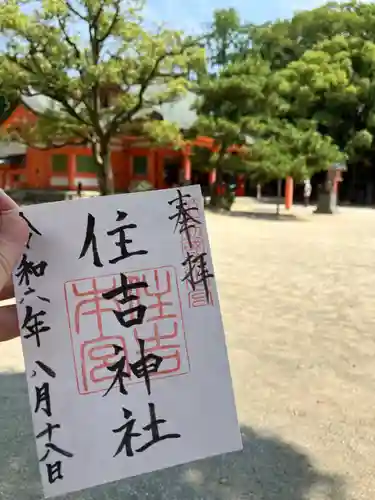 奉拝
住吉神社
令和六年八月十八日
住吉
本宮